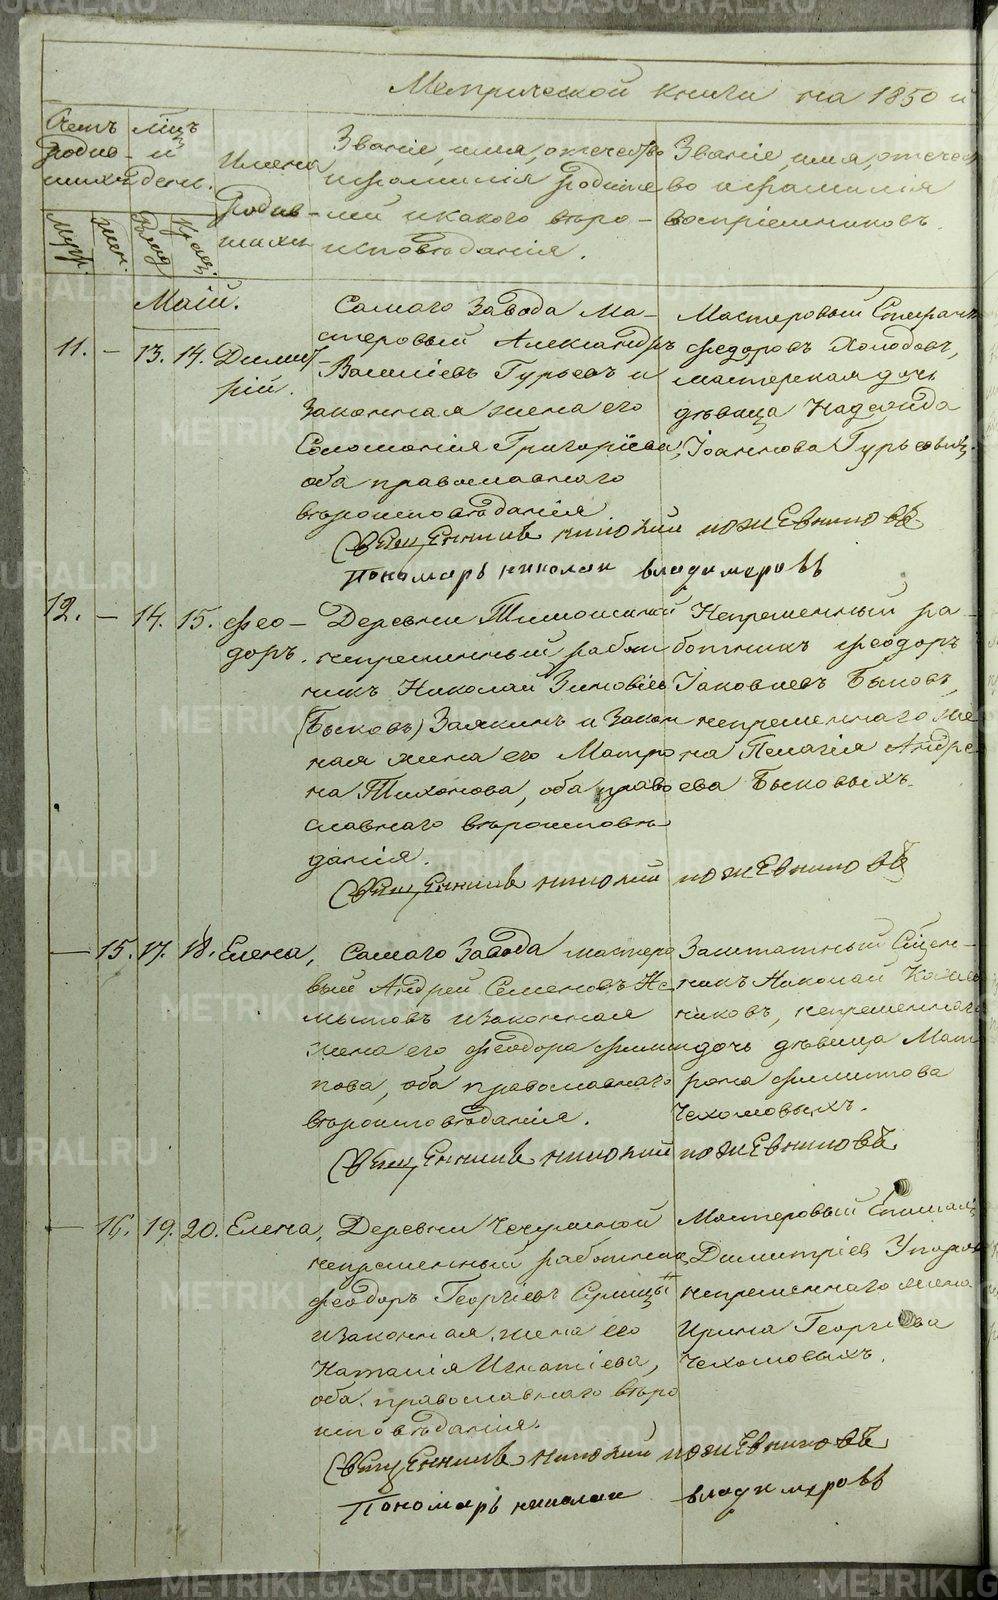 Метрической книги на 1850 й
Счетъ родив-шихся
Мѣсяцъ и день.
Имена родив-шихся
Званіе, имя, отечество
и фамилія родите-
лей и какого вѣро-
исповѣданія.
Званіе, имя, отечест
во и фамилія
воспріемниковъ.
Муж. Жен. Рожд. Крещ.
Маій.
11. — 13. 14. Димит-
рій.
Самаго Завода Ма-
стеровый Александръ
Василіевъ Гурьевъ и
Законная жена его
Соломонія Григоріева,
оба православнаго
вѣроисповѣданія
Мастеровый Стефанъ
Федоровъ Холодовъ,
мастерская дочь
дѣвица Надежда
Іоаннова Гурьевыхъ.
Священникъ Николай Пожевниковъ
Пономарь Николай Владимеровъ
12. — 14. 15. Фео-
доръ.
Деревни Тимошиной
непременный работ
никъ Николай Зиновіев
(Быковъ) Заякинъ и Закон
ная жена его Матро
на Тихонова, оба право
славнаго вѣроисповѣ
данія.
Непременный ра-
ботникъ Феодоръ
Іаковлевъ Быковъ,
непременнаго же
на Пелагія Андре
ева Быковыхъ.
Священникъ Николай Пожевниковъ
— 15. 17. 18. Елена,
Самаго Завода мастеро
вый Андрей Семеновъ Не
мытовъ и законная
жена его Феодора Филип
пова, оба православнаго
вѣроисповѣданія.
Заштатный Сщен-
никъ Николай
никовъ, непременнаго
дочь дѣвица Мат
рона Филипова
Чехомовыхъ.
Священникъ Николай Пожевниковъ
— 16. 19. 20. Елена,
Деревни
непременный работник
Феодоръ Георгіевъ
и законная жена его
Наталія Игнатіева,
оба православнаго вѣро
исповѣданія.
Мастеровый
Димитріев
непременнаго жена
Ирина Георгіева
Чехомовыхъ.
Священникъ Николай Пожевниковъ
Пономарь Николай Владимеровъ
METRIKI.GASO-URAL.RU